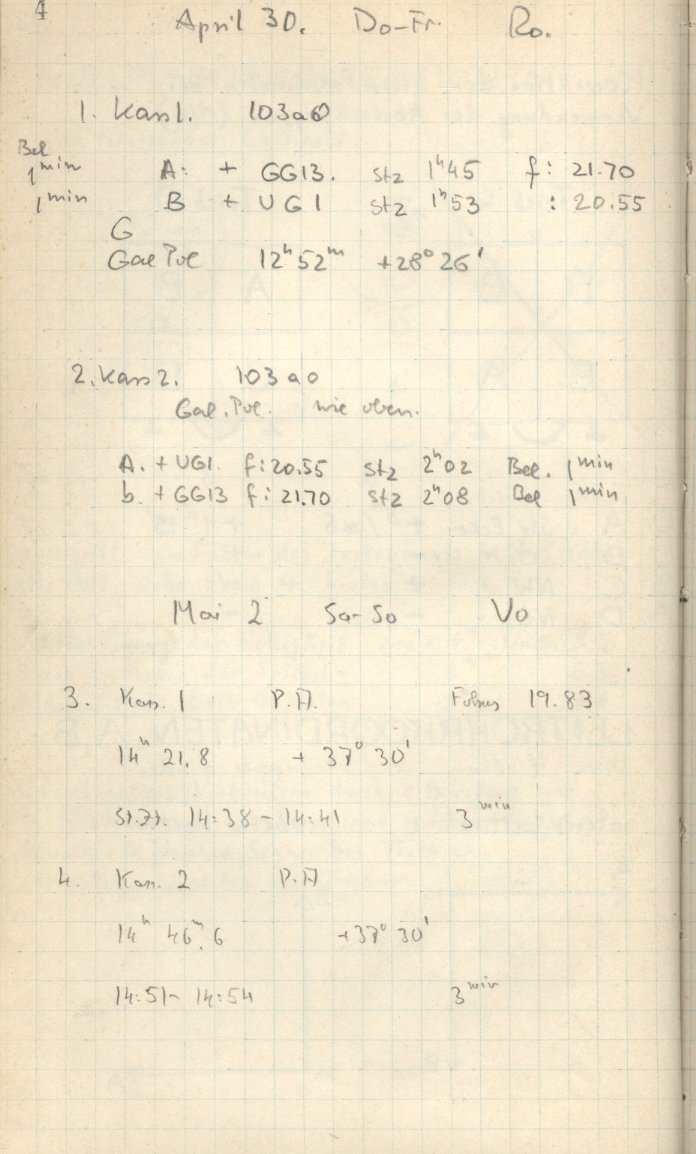 4
April 30. Do-Fr. Ro.
1. Kass1. 103aO
Bel
1 min A: + GG13. stz 1h45 f: 21.70
1 min B + UG1 stz 1h53 : 20.55
G
Gal Pol 12h 52m +28° 26'
2. Kass 2. 103 a O
Gal. Pol. wie oben.
A. + UG1. f: 20.55 stz 2h02 Bel. 1 min
b. + GG13 f: 21.70 stz 2h08 Bel 1 min
Mai 2 Sa-So Vo
3. Kass. 1 P.A. Fokus 19.83
14h 21.8 + 37° 30'
St.Zt. 14:38 - 14:41 3 min
4. Kass. 2 P.A
14h 46m.6 +37° 30'
14:51 - 14:54 3 min